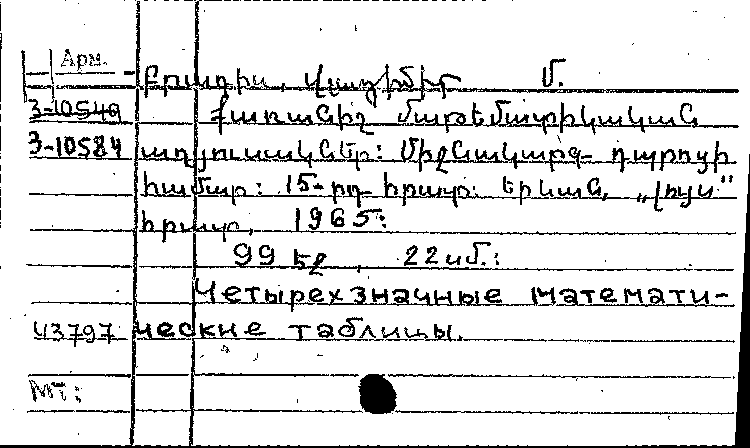 Арм.
Բրադիս, Վլադիմիր Մ.
3-10540 Քառանիշ մաթեմատիկական
3-10584 աղյուսակներ: Միջնակարգ դպրոցի
համար: 15-րդ հրատ: Երևան, „Լույս"
հրատ, 1965:
99 էջ, 22 սմ.:
Четырехзначные математи-
43797 ческие таблицы.
МТ: